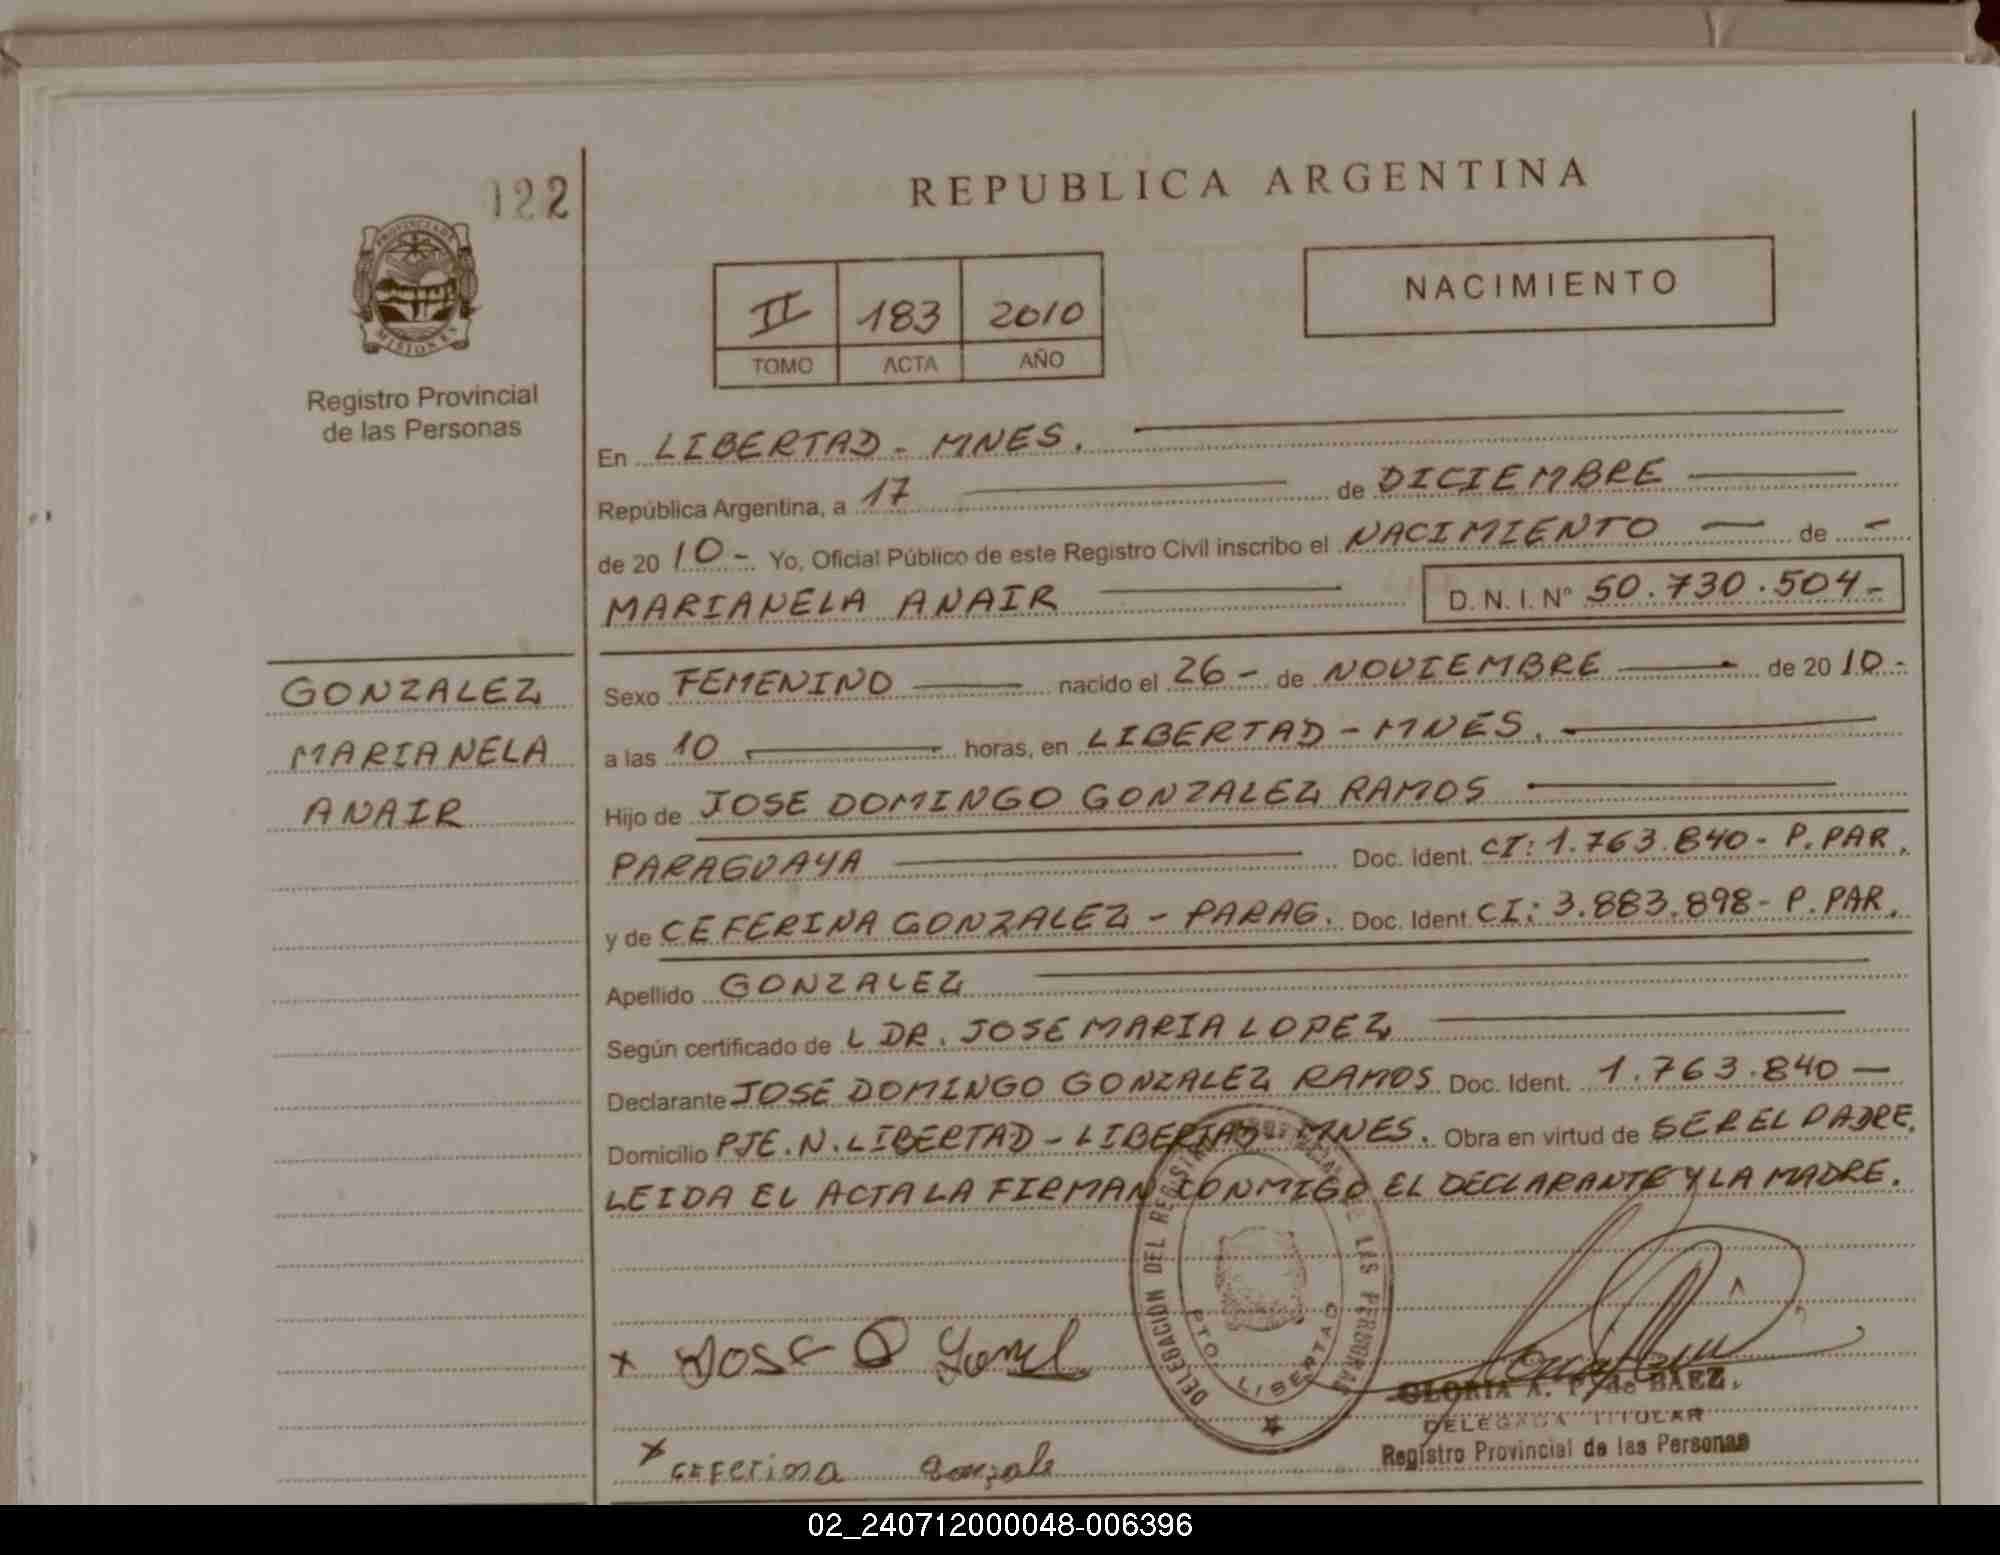 122
PROVINCIA DE
MISIONES
Registro Provincial
de las Personas
REPUBLICA ARGENTINA
II 183 2010
TOMO ACTA AÑO
NACIMIENTO
En LIBERTAD - MNES.
República Argentina, a 17 de DICIEMBRE
de 2010 - Yo, Oficial Público de este Registro Civil inscribo el NACIMIENTO de -
MARIANELA ANAIR D. N. I. Nº 50.730.504-
GONZALEZ
MARIANELA
ANAIR
Sexo FEMENINO nacido el 26 - de NOVIEMBRE de 2010.-
a las 10 horas, en LIBERTAD - MNES.
Hijo de JOSE DOMINGO GONZALEZ RAMOS
PARAGUAYA Doc. Ident. CI: 1.763.840 - P. PAR.
y de CEFERINA GONZALEZ - PARAG. Doc. Ident. CI: 3.883.898 - P. PAR.
Apellido GONZALEZ
Según certificado de L DR. JOSE MARIA LOPEZ
Declarante JOSE DOMINGO GONZALEZ RAMOS Doc. Ident. 1.763.840 —
Domicilio PJE. N. LIBERTAD - LIBERTAD - MNES. Obra en virtud de SER EL PADRE.
LEIDA EL ACTA LA FIRMAN CONMIGO EL DECLARANTE Y LA MADRE.
DELEGACION DEL REGISTRO PROVINCIAL DE LAS PERSONAS
PTO. LIBERTAD
x JOSE D
GLORIA A. P. de BAEZ.
DELEGADA TITULAR
Registro Provincial de las Personas
x ceferina Gonzale
02_240712000048-006396